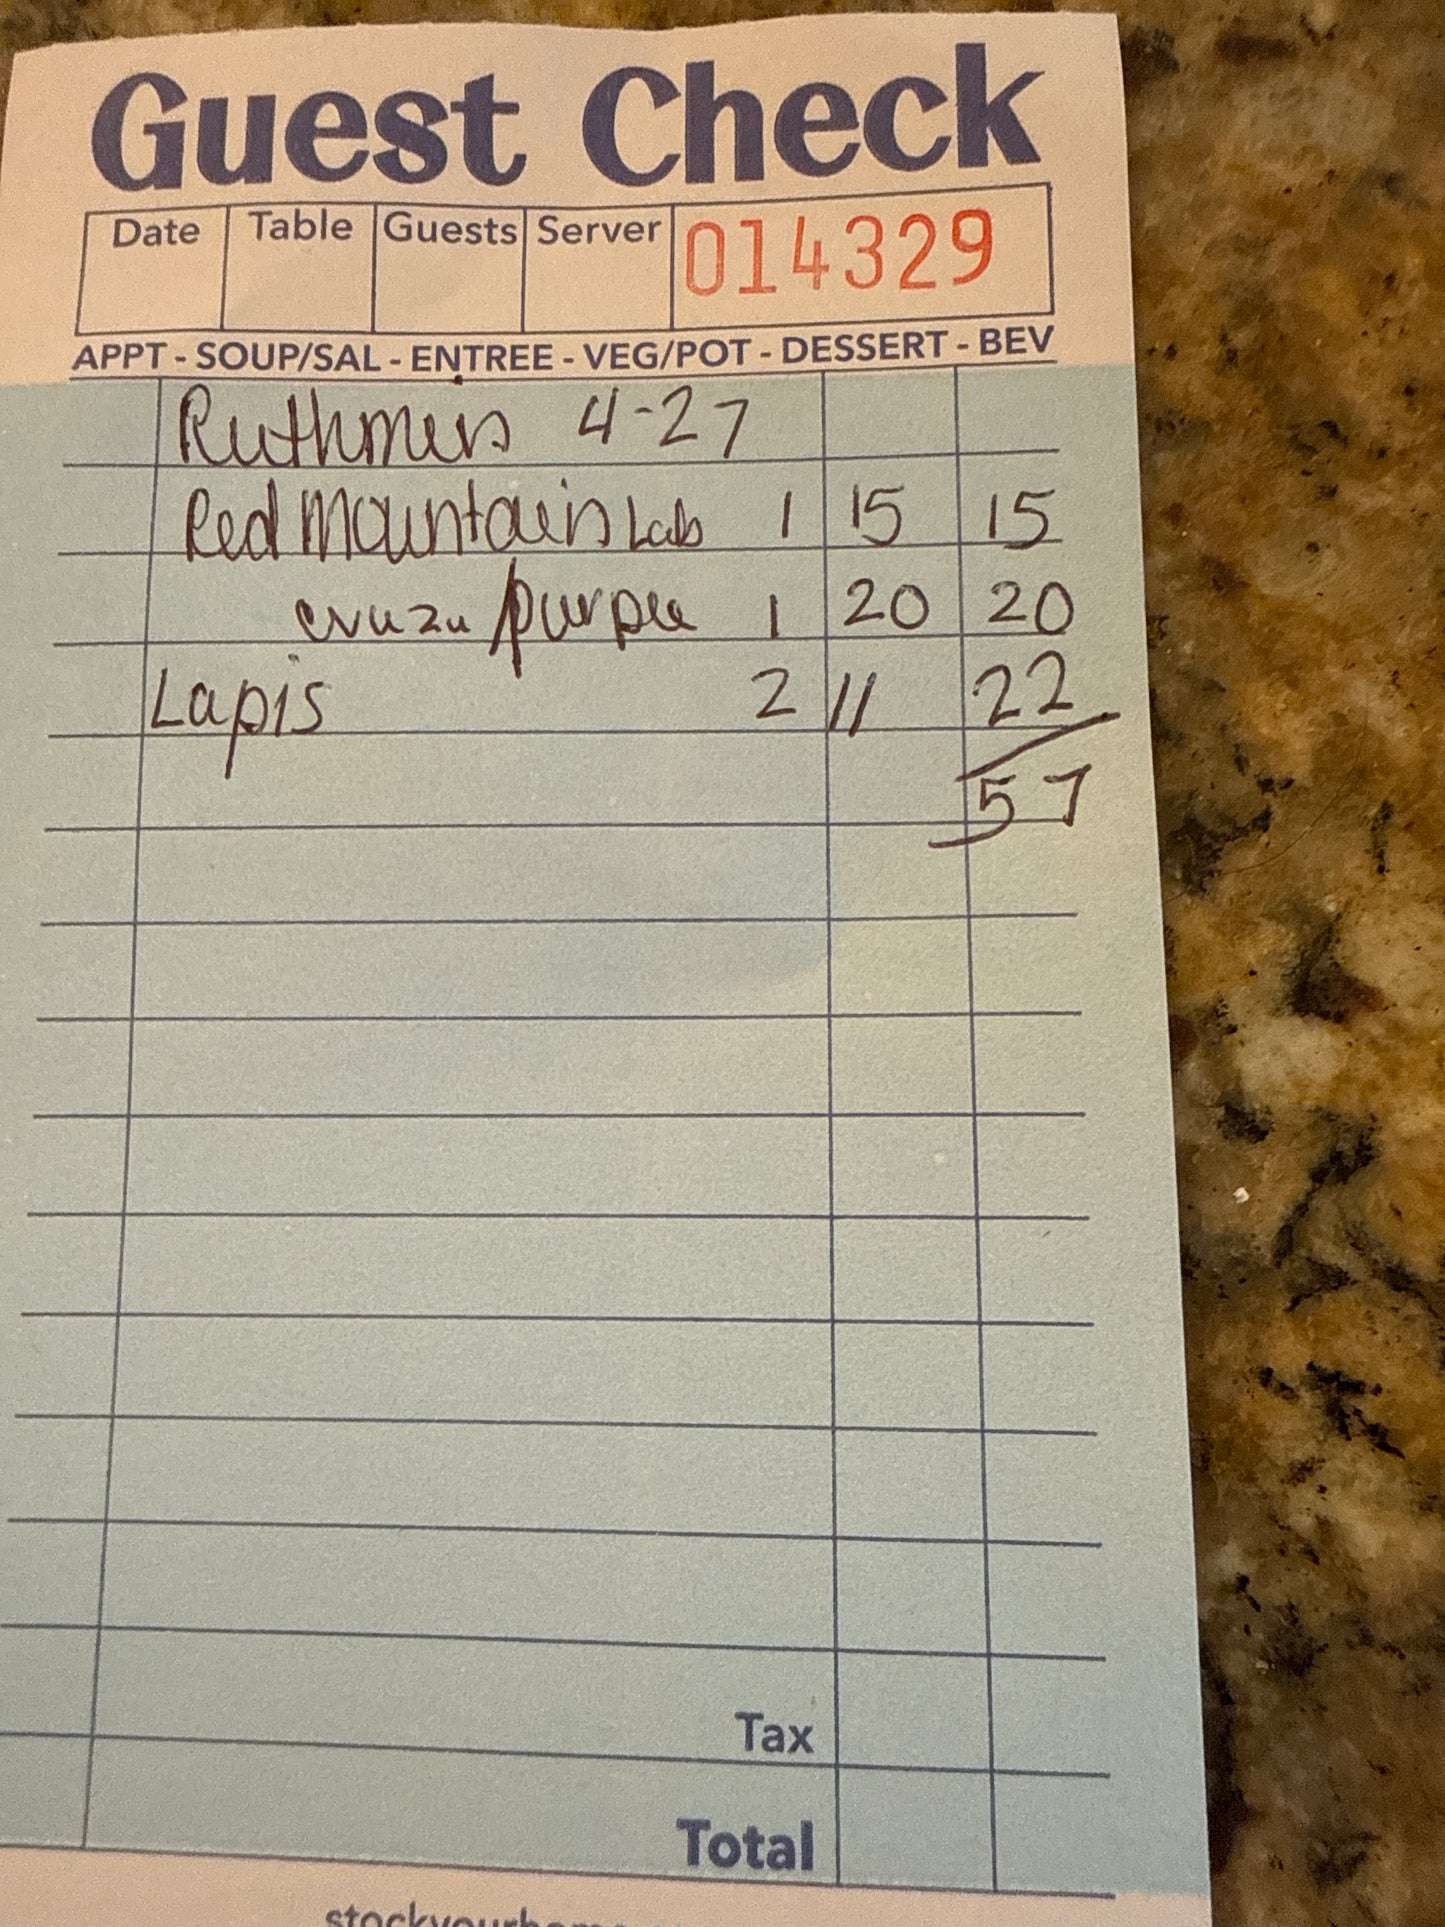 Guest Check
Date Table Guests Server 014329
APPT - SOUP/SAL - ENTREE - VEG/POT - DESSERT - BEV
4-27
Red Mountain Lab 1 15 15
/purple 1 20 20
Lapis 2 11 22
57
Tax
Total